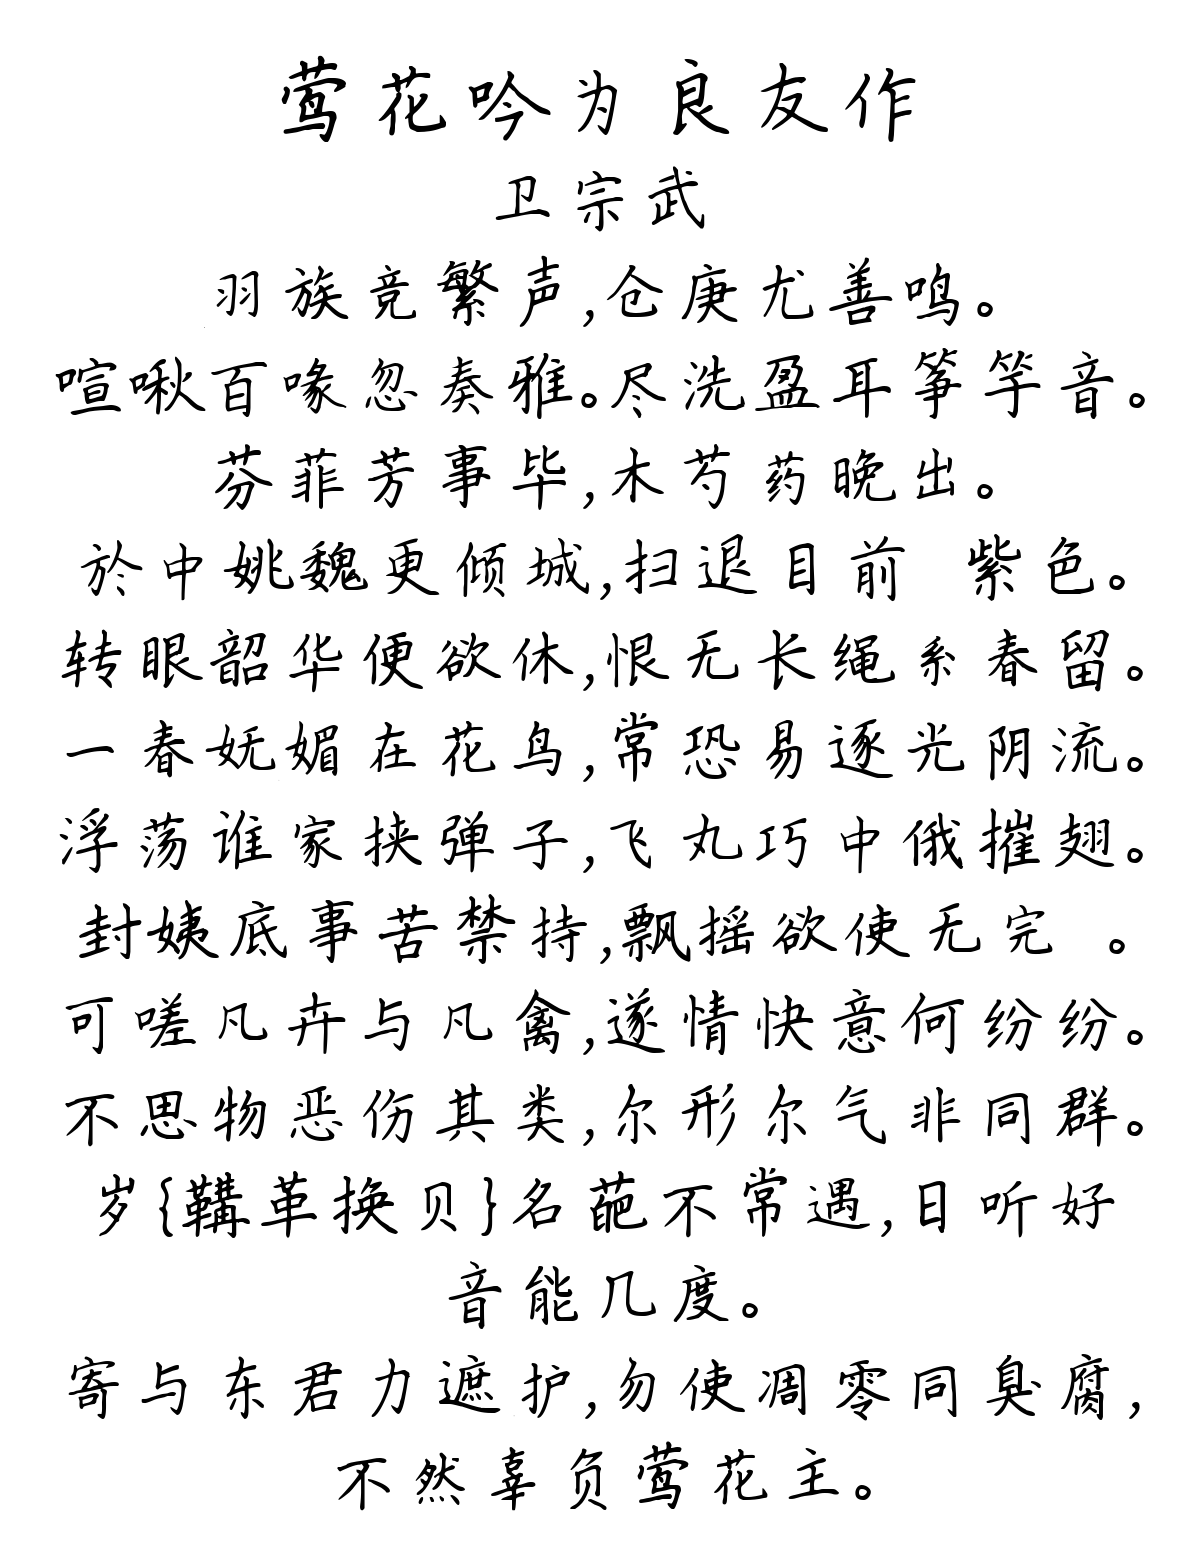 莺花吟为良友作
卫宗武
羽族竞繁声,仓庚尤善鸣。
喧啾百喙忽奏雅。尽洗盈耳筝竽音。
芬菲芳事毕,木芍药晚出。
於中姚魏更倾城,扫退目前 紫色。
转眼韶华便欲休,恨无长绳系春留。
一春妩媚在花鸟,常恐易逐光阴流。
浮荡谁家挟弹子,飞丸巧中俄摧翅。
封姨底事苦禁持,飘摇欲使无完 。
可嗟凡卉与凡禽,遂情快意何纷纷。
不思物恶伤其类,尔形尔气非同群。
岁{鞲革换贝}名葩不常遇,日听好
音能几度。
寄与东君力遮护,勿使凋零同臭腐,
不然辜负莺花主。